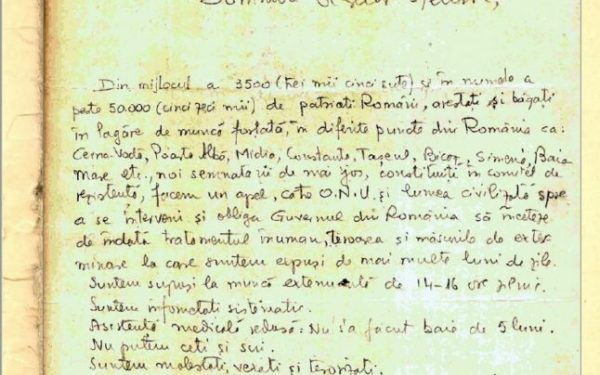 Din mijlocul a 3500 (trei mii cinci sute) și în numele a
peste 50.000 (cinci zeci mii) de patrioti Români, arestați și băgați
în lagăre de muncă forțată, în diferite puncte din România ca:
Cerna-Voda, Poarta Albă, Midia, Constanta, Tașeul, Bicaz, Simeria, Baia
Mare etc., noi semnatarii de mai jos, constituiți în comitet de
rezistență, facem un apel, catre O.N.U și lumea civilizată spre
a se interveni și obliga Guvernul din România să înceteze
de îndată tratamentul inuman, teroarea și măsurile de exter-
minare la care suntem expuși de mai multe luni de zile.
Suntem supuși la muncă extenuantă de 14-16 ore zilnic.
Suntem infometati sistematic.
Asistenta medicală redusă. Nu s'a făcut baie de 5 luni.
Nu putem ceti și scri.
Suntem molestati, vexati și terorizati.